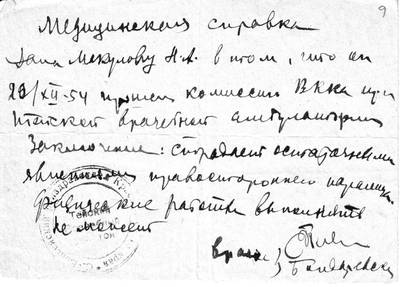 9
Медицинская справка
Дана Мекулову Н.А. в том, что он
23/XII-54 прошел комиссию ВКК при
врачебной амбулатории
Заключение: страдает остаточными
явлениями правостороннего
Физические работы выполнять
не может
врач